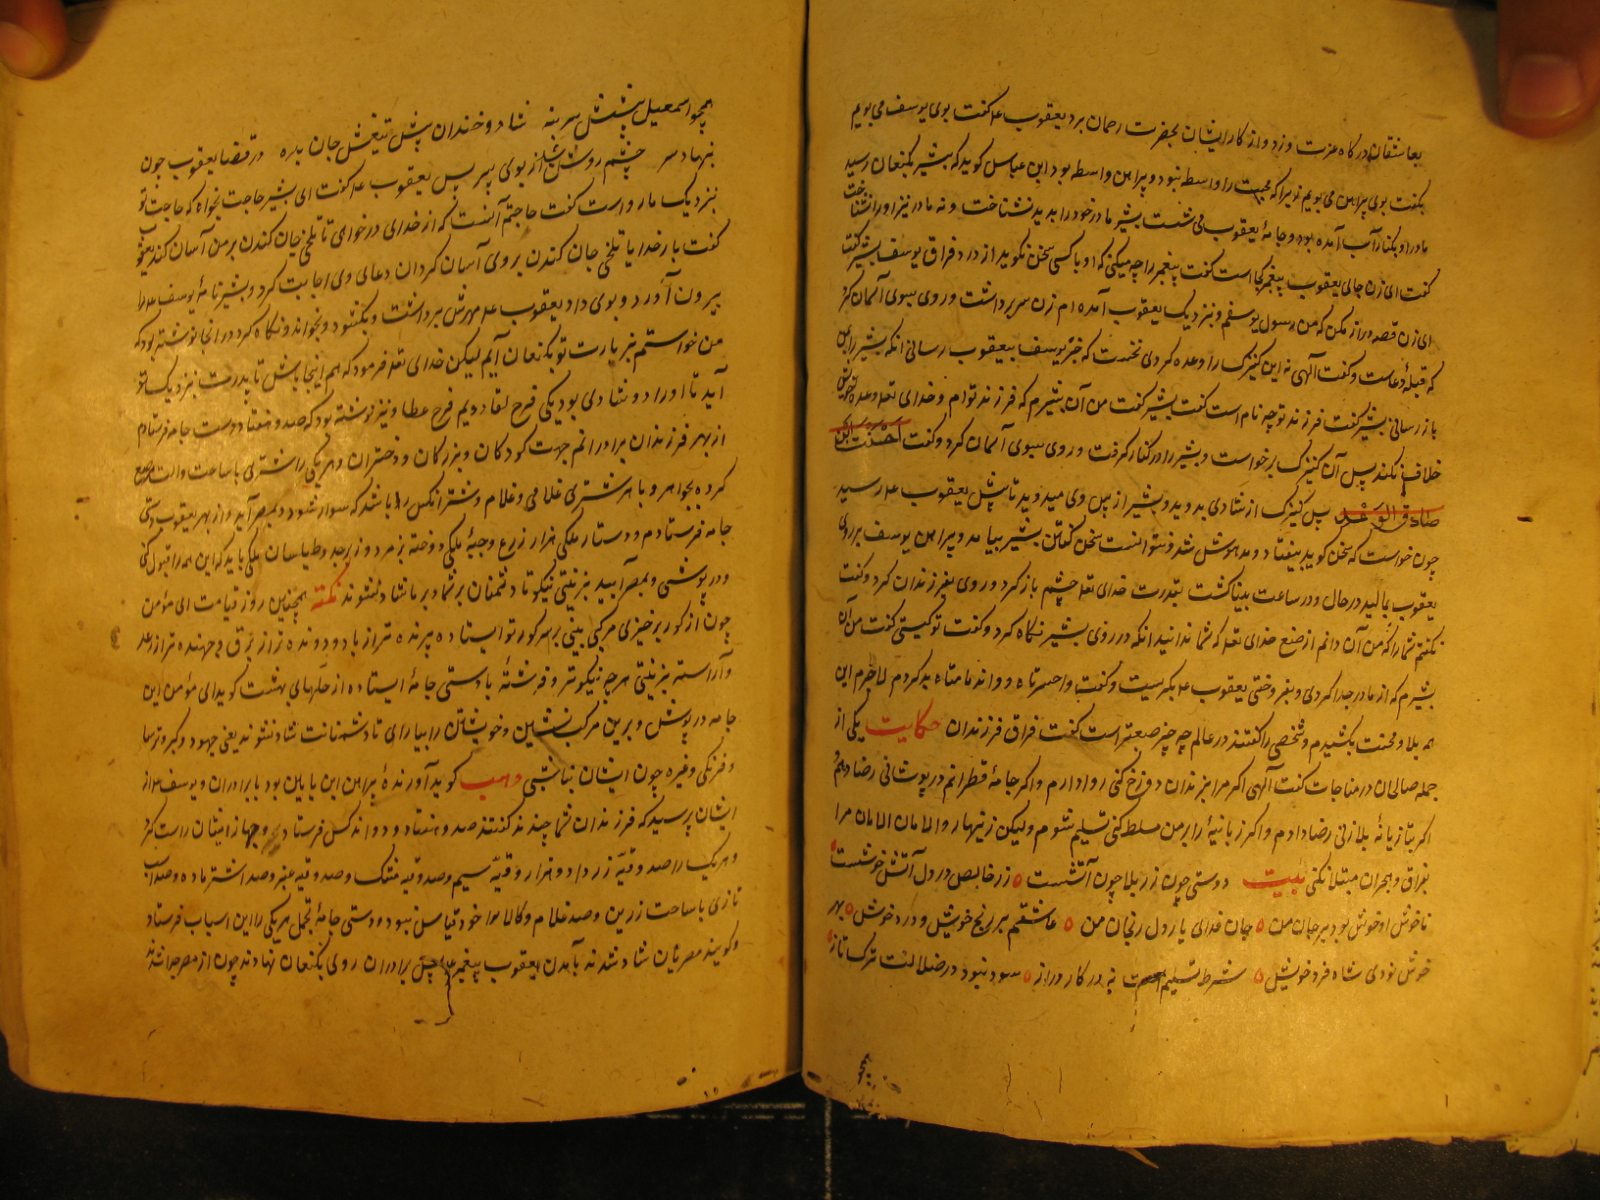 بعاشقان درگاه عزت وزد و از کار ایشان بحضرت رحمان برد یعقوب ع م گفت بوی یوسف می بویم
نگفت بوی پیراهن می بویم زیرا که محبت را واسطه نبود و پیراهن واسطه بود ابن عباس گوید که بشیر بکنعان رسید
مادر او بکنار آب آمده بود و جامهٔ یعقوب می شست بشیر مادر خود را بدید نشناخت و نه مادر نیز او را شناخت
گفت ای زن جای یعقوب پیغمبر کجا است گفت پیغمبر را چه میکنی که او با کسی سخن نگوید از درد فراق یوسف بشیر گفت
ای زن قصه دراز مکن که من رسول یوسفم و بنزدیک یعقوب آمده ام زن سر برداشت و روی سوی آسمان کرد
که قبلهٔ دعاست و گفت الهی نه این کنیزک را وعده کردی نخست که خبر یوسف بیعقوب رسانی آنکه بشیر را بمن
باز رسانی بشیر گفت فرزند تو چه نام است گفت بشیر گفت من آن بشیرم که فرزند توام و خدای تعالی وعده خویش
خلاف نکند پس آن کنیزک برخواست و بشیر را در کنار گرفت و روی سوی آسمان کرد و گفت احسنت
صادق الوعد پس کنیزک از شادی بدوید و بشیر از پس وی میدوید تا پیش یعقوب ع م رسید
چون خواست که سخن گوید بیفتاد و مدهوش شد و نتوانست سخن گفتن بشیر بیامد و پیراهن یوسف بر روی
یعقوب بمالید در حال و در ساعت بینا گشت بقدرت خدای تعالی چشم باز کرد و روی بفرزندان کرد و گفت
نگفتم شما را که من آن دانم از صنع خدای تعالی که شما ندانید آنکه در روی بشیر نگاه کرد و گفت تو کیستی گفت من آن
بشیرم که از مادر جدا کردی و بفروختی یعقوب ع م بگریست و گفت واحسرتاه و واندامتاه بد کردم لاجرم این
همه بلا و محنت بکشیدم و شخصی را گفتند در عالم چه چیز صعبتر است گفت فراق فرزندان حکایت یکی از
جمله صالحان در مناجات گفت الهی اگر مرا بزندان دوزخ کنی روا دارم و اگر جامهٔ قطرانم در پوشانی رضا دهم
اگر بتازیانهٔ بلا زنی رضا دادم و اگر زبانیهٔ را بر من مسلط کنی تسلیم شوم ولیکن زینهار و الامان الامان مرا
بفراق و هجران مبتلا نکنی بیت دوستی چون زر بلا چون آتشست زر خالص در دل آتش خوشست
ناخوش او خوش بود بر جان من جان فدای یار دل رنجان من عاشقم بر رنج خویش و درد خویش بهر
خوش نودی شاه فرد خویش شرط تسلیم است نه در کار دراز سود نبود در ضلالت ترک تاز
همچو
همچو اسمعیل پیشش سر بنه شاد و خندان پیش تیغش جان بده در قضا یعقوب چون
بنهاد سر چشم روشن شد از بوی پسر پس یعقوب ع م گفت ای بشیر حاجت بخواه که حاجت تو
بنزدیک ما رواست گفت حاجتم آنست که از خدای درخواهی تا تلخی جان کندن بر من آسان کند یعقوب
گفت بار خدایا تلخی جان کندن بر وی آسان گردان دعای وی اجابت کرد و بشیر نامهٔ یوسف ع م را
بیرون آورد و بوی داد یعقوب ع م مهرش برداشت و بگشود و بخواند و نگاه کرد در آنجا نوشته بود که
من خواستم بزیارت تو بکنعان آیم لیکن خدای تعالی فرمود که هم اینجا باش تا پدرت بنزدیک تو
آید تا او را دو شادی بود یکی فرح لقا دویم فرح عطا و نیز نوشته بود که صد و هفتاد دوست جامه فرستادم
از بهر فرزندان برادرانم جهت کودکان و بزرکان و دختران و هر یکی را شتری با ساعت و آلت مرصع
کرده بجواهر و با هر شتری غلامی و غلام دشتر آنکس را باشد که سوار شود و بمصر آید و از بهر یعقوب دستی
جامه فرستادم و دستار ملکی هزار زرع و جبهٔ ملکی دوخته بزمرد و زبرجد و طیلسان ملکی باید که این همه را قبول کنی
و در پوشی و بمصر آیید بزینتی نیکو تا دشمنان بر شما و بر ما نشاد نشوند نکته همچنین روز قیامت ای مؤمن
چون از کور برخیزی مرکبی بینی بر سر کور تو ایستاده پرنده تر از باد و دونده تر از برق و جهنده تر از رعد
و آراسته بزینتی هر چه نیکوتر و فرشتهٔ با دستی جامهٔ ایستاده از حلهای بهشت گوید ای مؤمن این
جامه در پوش و برین مرکب نشین و خویشتن را بیارای تا دشمنانت شاد نشوند یعنی جهود و گبر و ترسا
و فرنکی و غیره چون ایشان نباشی وهب گوید آورندهٔ پیراهن ابن یامین بود با برادران و یوسف ع م از
ایشان پرسید که فرزندان شما چندند گفتند صد و هفتاد و دو اند کس فرستاد و جهاز ایشان راست کرد
و هر یک را صد وقیه زر داد و هزار وقیه سیم و صد وقیه مشک و صد وقیه عنبر و صد اشتر ماده و صد اسب
تازی با ساخت زرین و صد غلام و کالا سوا خود قیاسی نبود و دستی جامهٔ تجمل هر یکی را این اسباب فرستاد
و گویند مصریان شاد شدند بآمدن یعقوب پیغمبر ع م پس برادران روی بکنعان نهادند چون از مصر جدا شدند